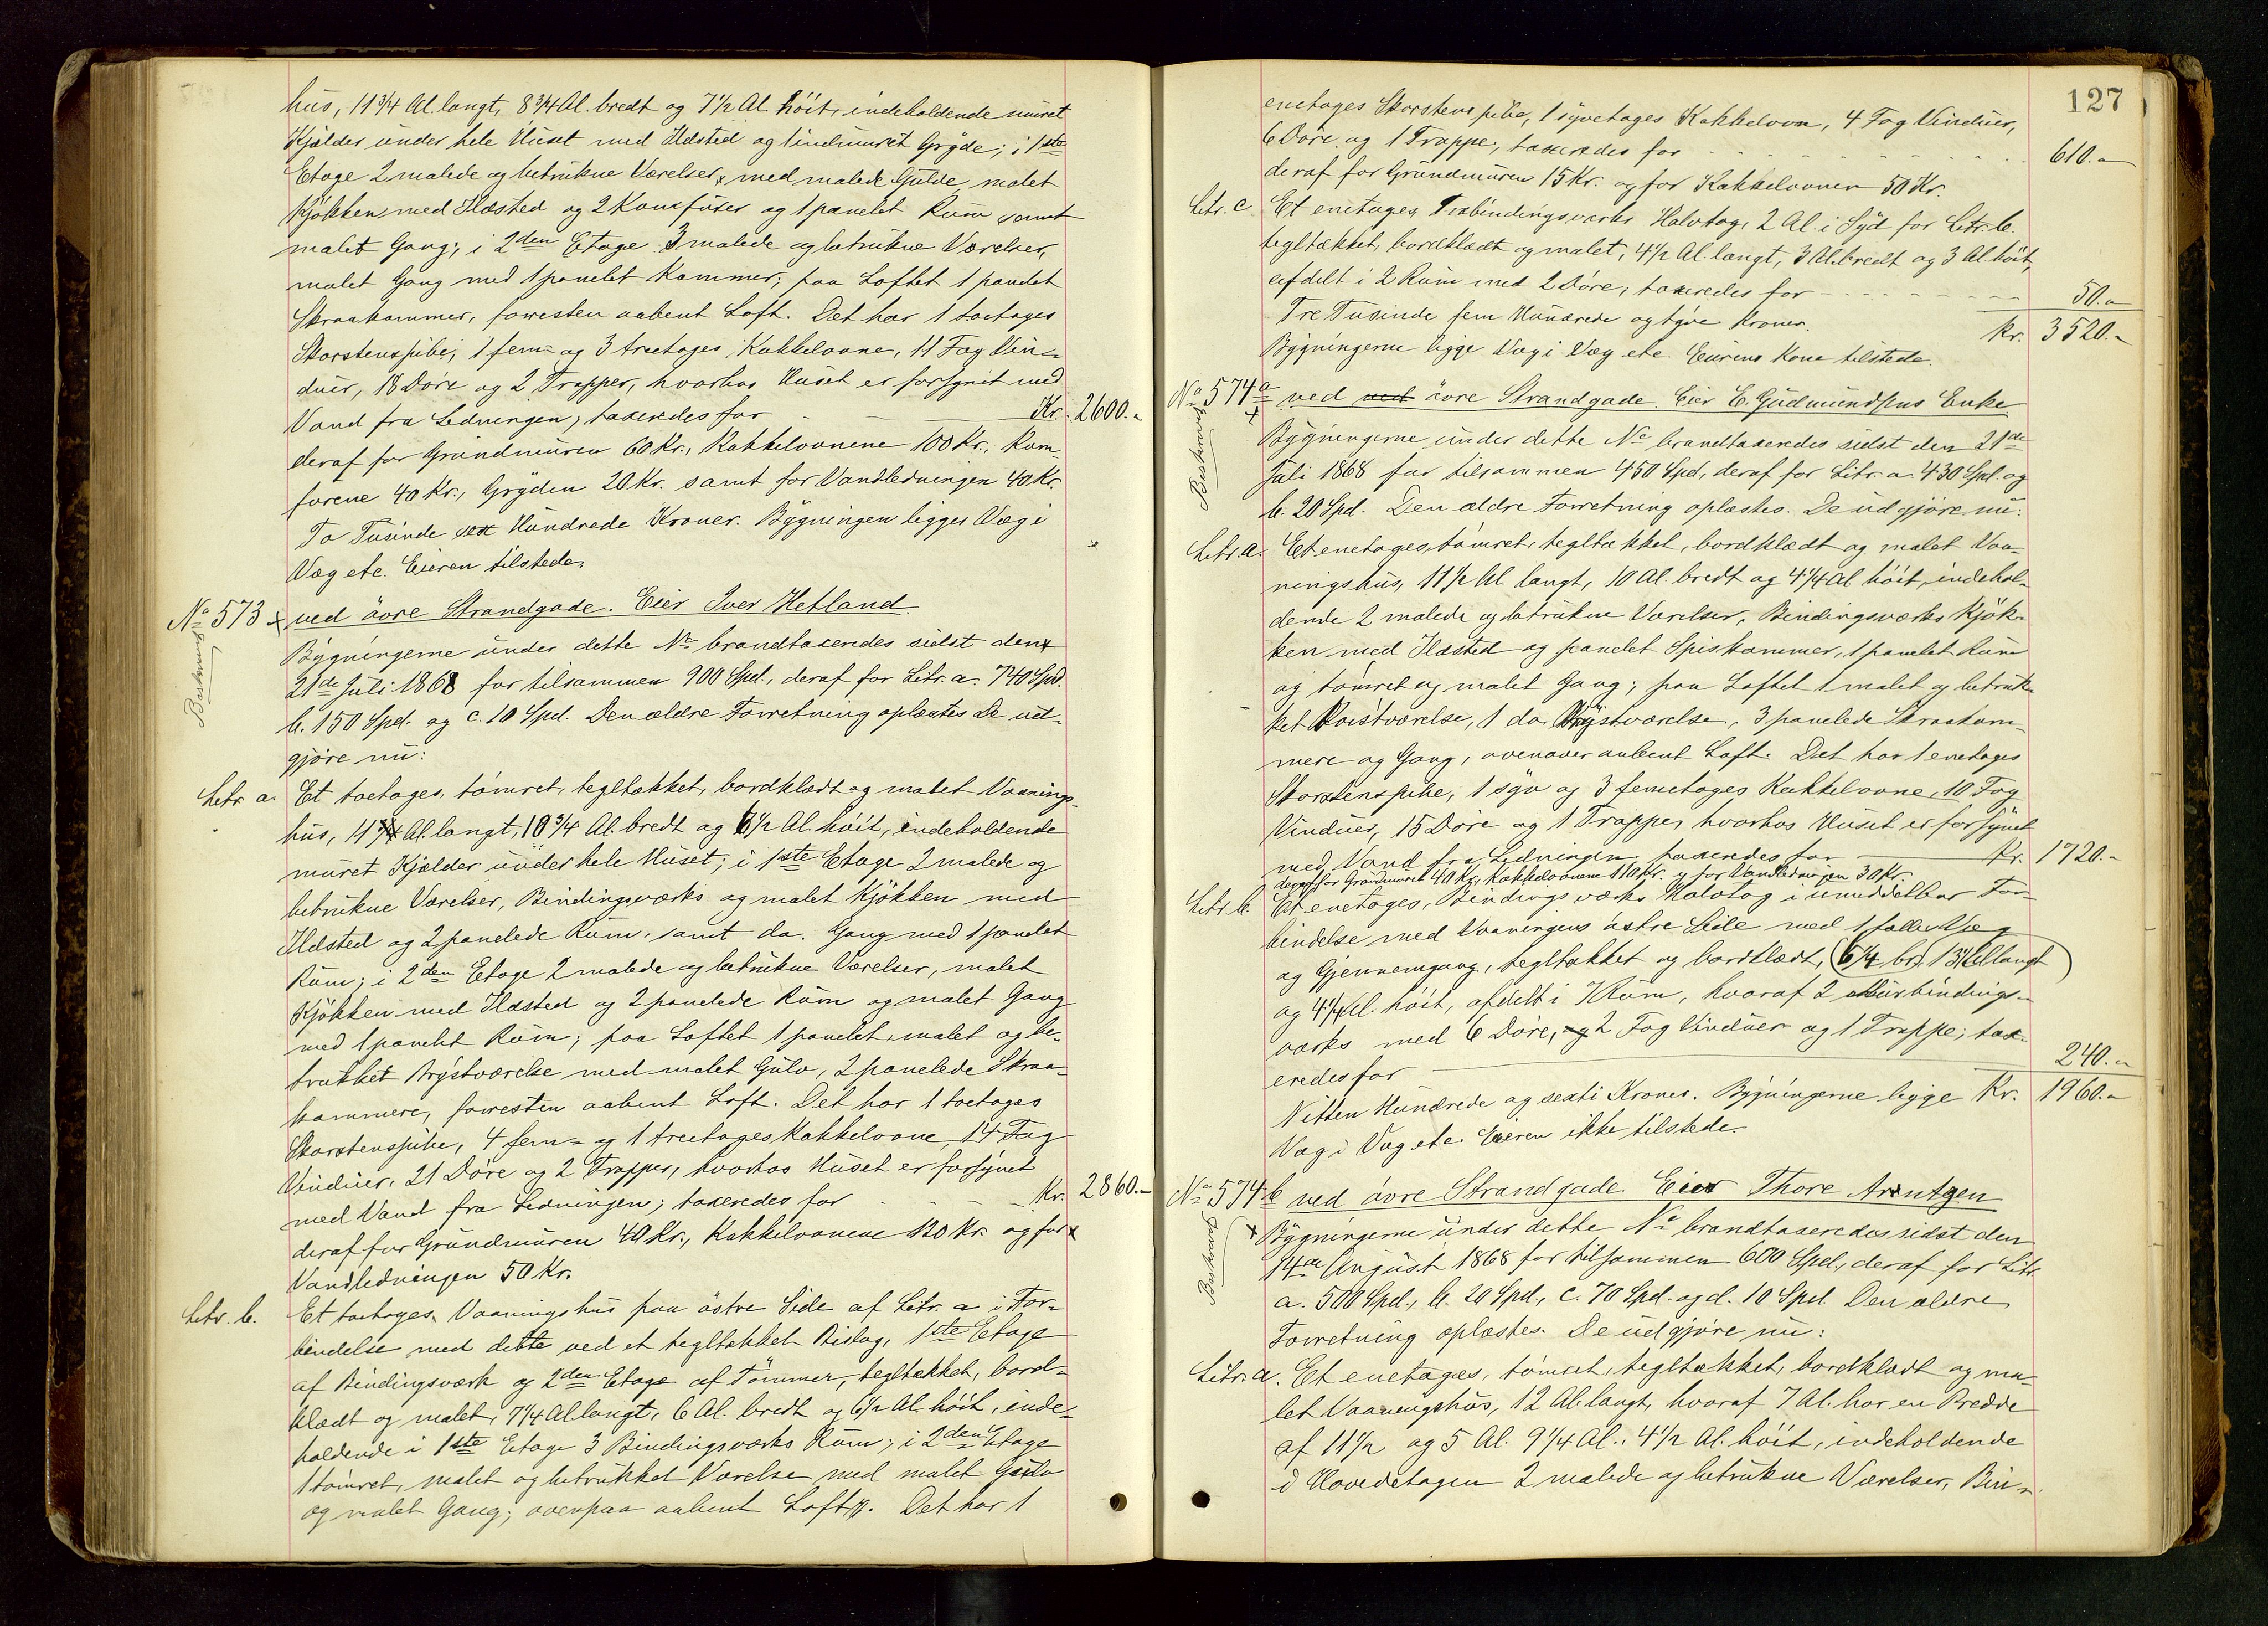 hus, 11 3/4 Al. langt, 8 3/4 Al. bredt og 7 1/2 Al. höit, indeholdende muret
Kjælder under hele Huset med Ildsted og 1 indmuret Gryde; i 1ste
Etage 2 malede og betrukne Værelser, med malede Gulve, malet
Kjøkken med Ildsted og 2 Komfurer og 1 panelet Rum samt
malet Gang; i 2den Etage 3 malede og betrukne Værelser,
malet Gang med 1 panelet Kammer; paa Loftet 1 panelet
Skraakammer, forresten aabent Loft. Det har 1 toetages
Skorstenspibe, 1 fem- og 3 treetages Kakkelovne, 11 Fag Vin-
duer, 18 Döre og 2 Trapper, hvorhos Huset er forsynet med
Vand fra Ledningen; taxeredes for Kr. 2600.-
deraf for Grundmuren 60 Kr., Kakkelovnene 100 Kr., Kom
furene 40 Kr., Gryden 20 Kr. samt for Vandledningen 40 Kr.
To Tusinde sex Hundrede Kroner. Bygningen ligger Væg i
Væg etc. Eieren tilstede.
No 573 ved övre Strandgade. Eier Iver Hetland
Bygningerne under dette No brandtaxeredes sidst den
21de Juli 1868 for tilsammen 900 Spd., deraf for Litr. a. 740 Spd.
b. 150 Spd. og c. 10 Spd. Den ældre Forretning oplæstes. De ud-
gjöre nu:
Litr. a. Et toetages, tömret, tegltækket, bordklædt og malet Vaanings-
hus, 11 Al. langt, 10 3/4 Al. bredt og 6 1/2 Al. höit, indeholdende
muret Kjælder under hele Huset; i 1ste Etage 2 malede og
betrukne Værelser, Bindingsværks og malet Kjökken med
Ildsted og 2 panelede Rum, samt do. Gang med 1 panelet
Rum; i 2den Etage 2 malede og betrukne Værelser, malet
Kjökken med Ildsted og 2 panelede Rum og malet Gang
med 1 panelet Rum; paa Loftet 1 panelet, malet og be-
trukket Kvistværelse med malet Gulv, 2 panelede Skraa-
kammere, forresten aabent Loft. Det har 1 toetages
Skorstenspibe, 4 fem- og 1 treetages Kakkelovne, 14 Fag
Vinduer, 21 Döre og 2 Trapper, hvorhos Huset er forsynet
med Vand fra Ledningen; taxeredes for Kr. 2860.-
deraf for Grundmuren 40 Kr., Kakkelovnene 120 Kr. og for
Vandledningen 50 Kr.
Litr. b. Et toetages Vaaningshus paa östre Side af Litr. a i For-
bindelse med dette ved et tegltækket Bislag, 1ste Etage
af Bindingsværk og 2den Etage af Tömmer, tegltækket, bord-
klædt og malet, 7 1/4 Al. langt, 6 Al. bredt og 6 1/2 Al. höit, inde-
holdende i 1ste Etage 3 Bindingsværks Rum; i 2den Etage
1 tömret, malet og betrukket Værelse med malet Gulv
og malet Gang; ovenpaa aabent Loft. Det har 1
127
enetages Skorstenspibe, 1 syvetages Kakkelovn, 4 Fag Vinduer,
6 Döre og 1 Trappe, taxeredes for 610.-
deraf for Grundmuren 15 Kr. og for Kakkelovnen 50 Kr.
Litr. c. Et enetages Bindingsværks Halvtag, 2 Al. i Syd for Litr. b.
tegltækket, bordklædt og malet, 4 1/2 Al. langt, 3 Al. bredt og 3 Al. höit,
afdelt i 2 Rum med 2 Döre, taxeredes for 50.-
Tre Tusinde fem Hundrede og tyve Kroner. Kr. 3520.-
Bygningerne ligge Væg i Væg etc. Eierens Kone tilstede.
No 574 a ved ved övre Strandgade. Eier E. Gudmundsens Enke
Bygningerne under dette No brandtaxeredes sidst den 21de
Juli 1868 for tilsammen 450 Spd., deraf for Litr. a 430 Spd. og
b. 20 Spd. Den ældre Forretning oplæstes. De udgjöre nu:
Litr. a. Et enetages, tömret, tegltækket, bordklædt og malet Vaa-
ningshus, 11 1/2 Al. langt, 10 Al. bredt og 4 1/4 Al. höit, indehol-
dende 2 malede og betrukne Værelser, Bindingsværks Kjök-
ken med Ildsted og panelet Spiskammer, 1 panelet Rum
og tömret og malet Gang; paa Loftet 1 malet og betruk-
ket Kvistværelse, 1 do. Kvistværelse, 3 panelede Skraakam-
mere og Gang, ovenover aabent Loft. Det har 1 enetages
Skorstenspibe, 1 syv og 3 femetages Kakkelovne, 10 Fag
Vinduer, 15 Döre og 1 Trappe, hvorhos Huset er forsynet
med Vand fra Ledningen, taxeredes for Kr. 1720.-
deraf for Grundmuren 40 Kr., Kakkelovnene 110 Kr. og for Vandledningen 30 Kr.
Litr. b. Et enetages, Bindingsværks Halvtag i umiddelbar For-
bindelse med Vaaningens östre Side med 1 fælles Væg
og Gjennemgang, tegltækket og bordklædt, (6 1/4 br. 13 Al. langt)
og 4 1/4 Al. höit, afdelt i Rum, hvoraf 2 Murbindings-
værks med 6 Döre, og 2 Fag Vinduer og 1 Trappe; tax-
eredes for 240.-
Nitten Hundrede og sexti Kroner. Bygningerne ligge Kr. 1960.-
Væg i Væg etc. Eieren ikke tilstede.
No 574 b ved övre Strandgade. Eier Thore Arntzen
Bygningerne under dette No brandtaxeredes sidst den
14de August 1868 for tilsammen 600 Spd., deraf for Litr.
a. 500 Spd., b. 20 Spd., c. 70 Spd. og d. 10 Spd. Den ældre
Forretning oplæstes. De udgjöre nu:
Litr. a. Et enetages, tömret, tegltækket, bordklædt og ma-
let Vaaningshus, 12 Al. langt, hvoraf 7 Al. har en Bredde
af 11 1/2 og 5 Al. 9 1/4 Al., 4 1/2 Al. höit, indeholdende
i Hovedetagen 2 malede og betrukne Værelser, Bin-